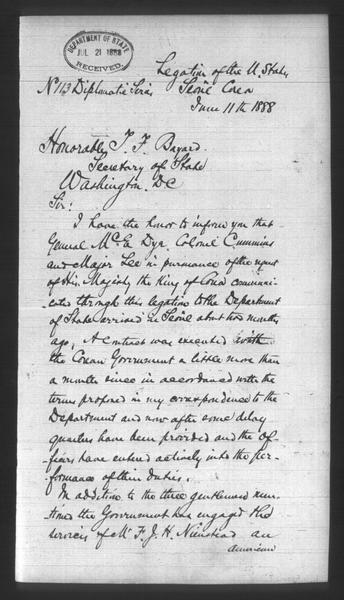 DEPARTMENT OF STATE
JUL 21 1888
RECEIVED
Legation of the U. States
No 113 Diplomatic Series Seoul Corea
June 11th 1888
Honorable T. F. Bayard.
Secretary of State
Washington. DC
Sir:
I have the honor to inform you that
General Mc E Dye, Colonel Cummins
and Major Lee in pursuance of the request
of His Majesty the King of Corea communi-
cated through this legation to the Department
of State arrived in Seoul about two months
ago, A contract was executed with
the Corean Government a little more than
a month since in accordance with the
terms proposed in my correspondence to the
Department and now after some delay
quarters have been provided and the Of-
ficers have entered actively into the per-
formance of their duties.
In addition to the three gentlemen men-
tioned the Government has engaged the
services of Mr F. J. H. Nienstead an
American